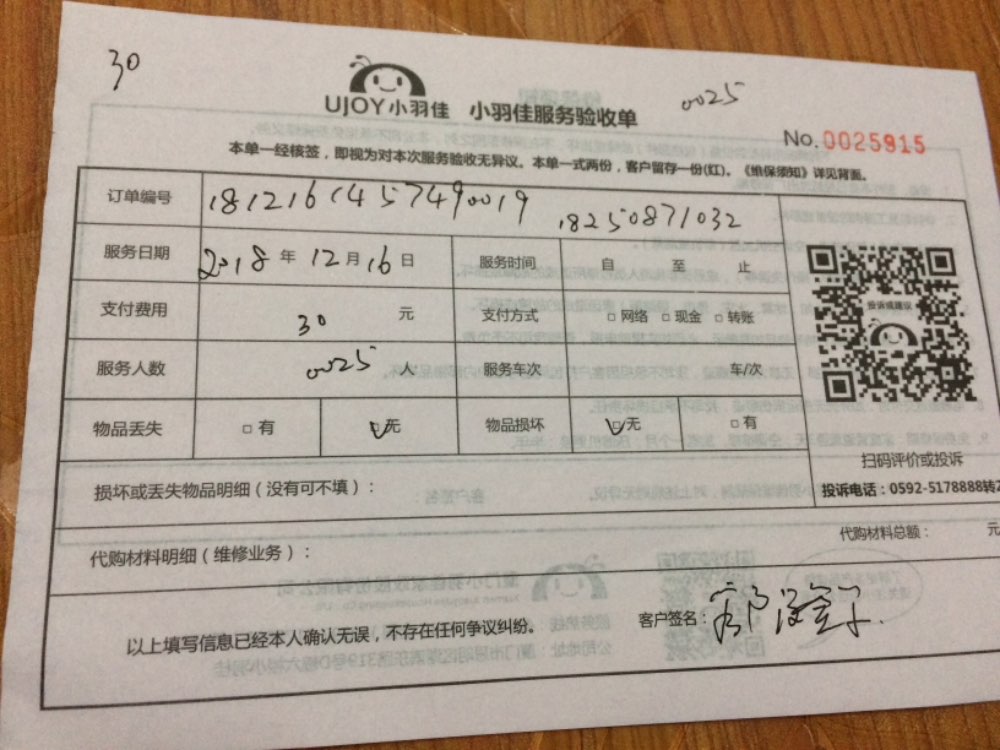 30
UJOY小羽佳 小羽佳服务验收单
0025
No. 0025915
本单一经核签，即视为对本次服务验收无异议。本单一式两份，客户留存一份(红)。《维保须知》详见背面。
订单编号 1812161457490019 18250871032
服务日期 2018 年 12 月 16 日 服务时间 自 至 止
支付费用 30 元 支付方式 □ 网络 □ 现金 □ 转账
服务人数 0025 人 服务车次 车/次
物品丢失 □ 有 □ 无 物品损坏 □ 无 □ 有
投诉或建议
扫码评价或投诉
投诉电话：0592-5178888转2
损坏或丢失物品明细（没有可不填）：
代购材料明细（维修业务）：
代购材料总额： 元
以上填写信息已经本人确认无误，不存在任何争议纠纷。
客户签名：